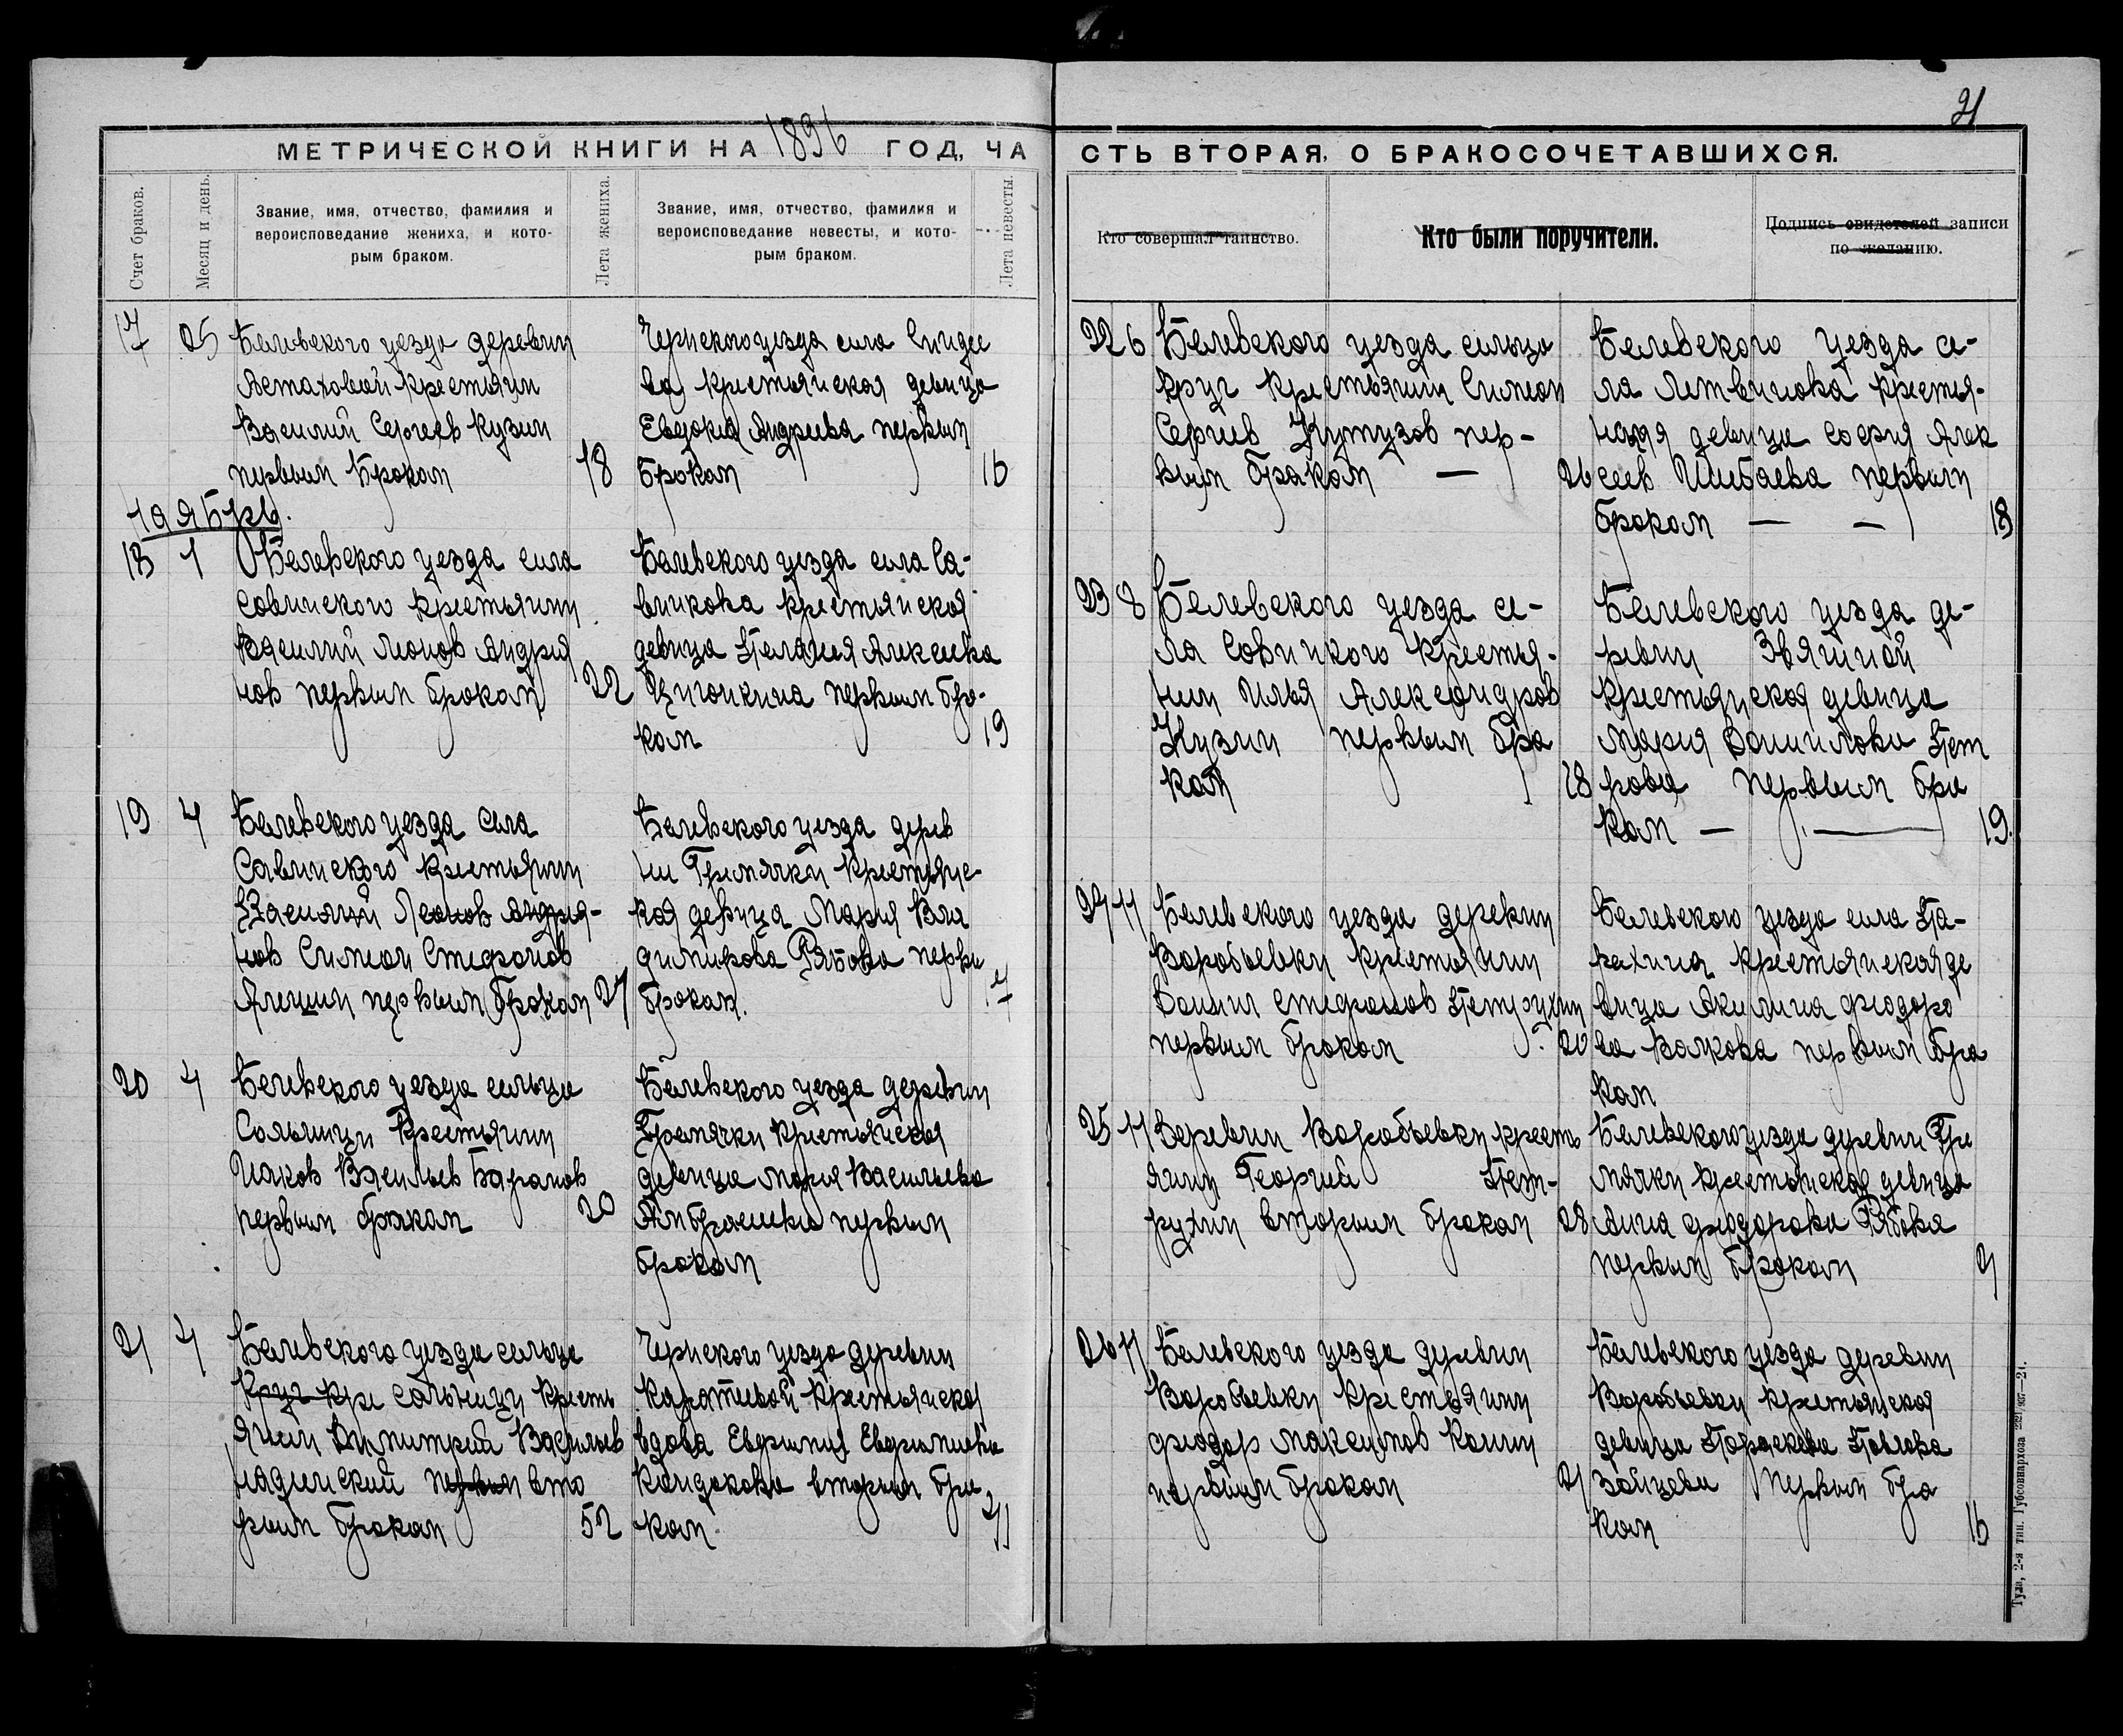 21
МЕТРИЧЕСКОЙ КНИГИ НА 1896 ГОД, ЧАСТЬ ВТОРАЯ, О БРАКОСОЧЕТАВШИХСЯ.
Счет браков.
Месяц и день.
Звание, имя, отчество, фамилия и
вероисповедание жениха, и кото-
рым браком.
Лета жениха.
Звание, имя, отчество, фамилия и
вероисповедание невесты, и кото-
рым браком.
Лета невесты.
Кто совершал таинство.
Кто были поручители.
Подпись свидетелей записи
по желанию.
17 25 Белевского уезда деревни
Астаховой крестьянин
Василий Сергеев Кузин
первым браком 18
Чернского уезда села
ва крестьянская девица
Евдокия Андреева первым
браком 16
ноябрь.
18 1 Белевского уезда села
Савинского крестьянин
Василий Леонов Андрия
нов первым браком 22
Белевского уезда села Са-
винкова крестьянская
девица Пелагея Алексеева
Цигонкина первым бра-
ком 19
19 4 Белевского уезда села
Савинского крестьянин
Василий Леонов Андрия-
нов Симеон Стефанов
Алешин первым браком 27
Белевского уезда дерев
ни Гремячки крестьянс-
кая девица Мария Вла
димирова Рябова первы
браком. 17
20 4 Белевского уезда сельца
Сальницы крестьянин
Иаков Васильев Баранов
первым браком 20
Белевского уезда деревни
Гремячки крестьянская
девица Мария Васильева
Амбрашева первым
браком
21 4 Белевского уезда сельца
Круг кре Сальницы кресть
янин Димитрий Васильев
первым вто
рым браком 52
Чернского уезда деревни
Каратеевой крестьянская
вдова Евфимия Евфимиева
Кандакова вторым бра
ком
22 6 Белевского уезда сельца
Круг крестьянин Симеон
Сергиев Кутузов пер-
вым браком — 26
Белевского уезда се-
ла Литвинова крестья-
ная девица София Алек
сеев Шибаева первым
браком — — 18
23 8 Белевского уезда се-
ла Савинкого крестья-
нин Илья Александров
Кузин первым бра
ком 18
Белевского уезда де-
ревни Звягиной
крестьянская девица
Мария Даниилова Пет
рова первым бра
ком — — 19.
24 11 Белевского уезда деревни
Воробьевки крестьянин
Даниил Стефанов Петрухин
первым браком 20
Белевского уезда села Па-
рахина крестьянская де
вица Акилина Феодоро
ва Валкова первым бра
ком
25 11 Деревни Воробьевки кресть
янин Георгий Пет-
рухин вторым браком 28
Белевского уезда деревни Гре
мячки крестьянская девица
Анна Феодорова Рябова
первым браком 21
26 11 Белевского уезда деревни
Воробьевки крестьянин
Феодор Максимов Конин
первым браком 21
Белевского уезда деревни
Воробьевки крестьянская
девица Параскева Павлова
Зайцева первым бра
ком 16
Тула, 2-я тип. Губсовнархоза